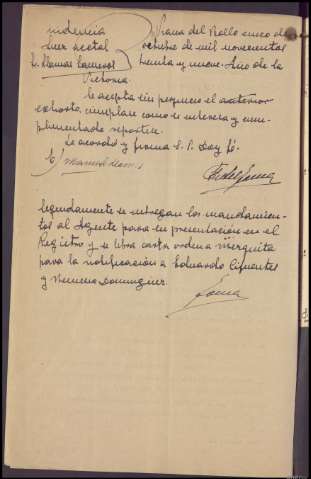 Providencia
Juez acctal
Sr. Llamas Larruscal
Viana del Bollo cinco de
octubre de mil novecientos
treinta y nueve. Año de la
Victoria.
Se acepta sin perjuicio el anterior
exhorto, cúmplase como se interesa y cum-
plimentado reportese.
Lo acordó y firma S. Sª. Doy fé.
E/ Manuel Llamas
Seguidamente se entregan los mandamien-
tos al Agente para su presentación en el
Registro y se libra carta orden a Mezquita
para la notificación a Eduardo Cifuentes
y Nemesia Dominguez.